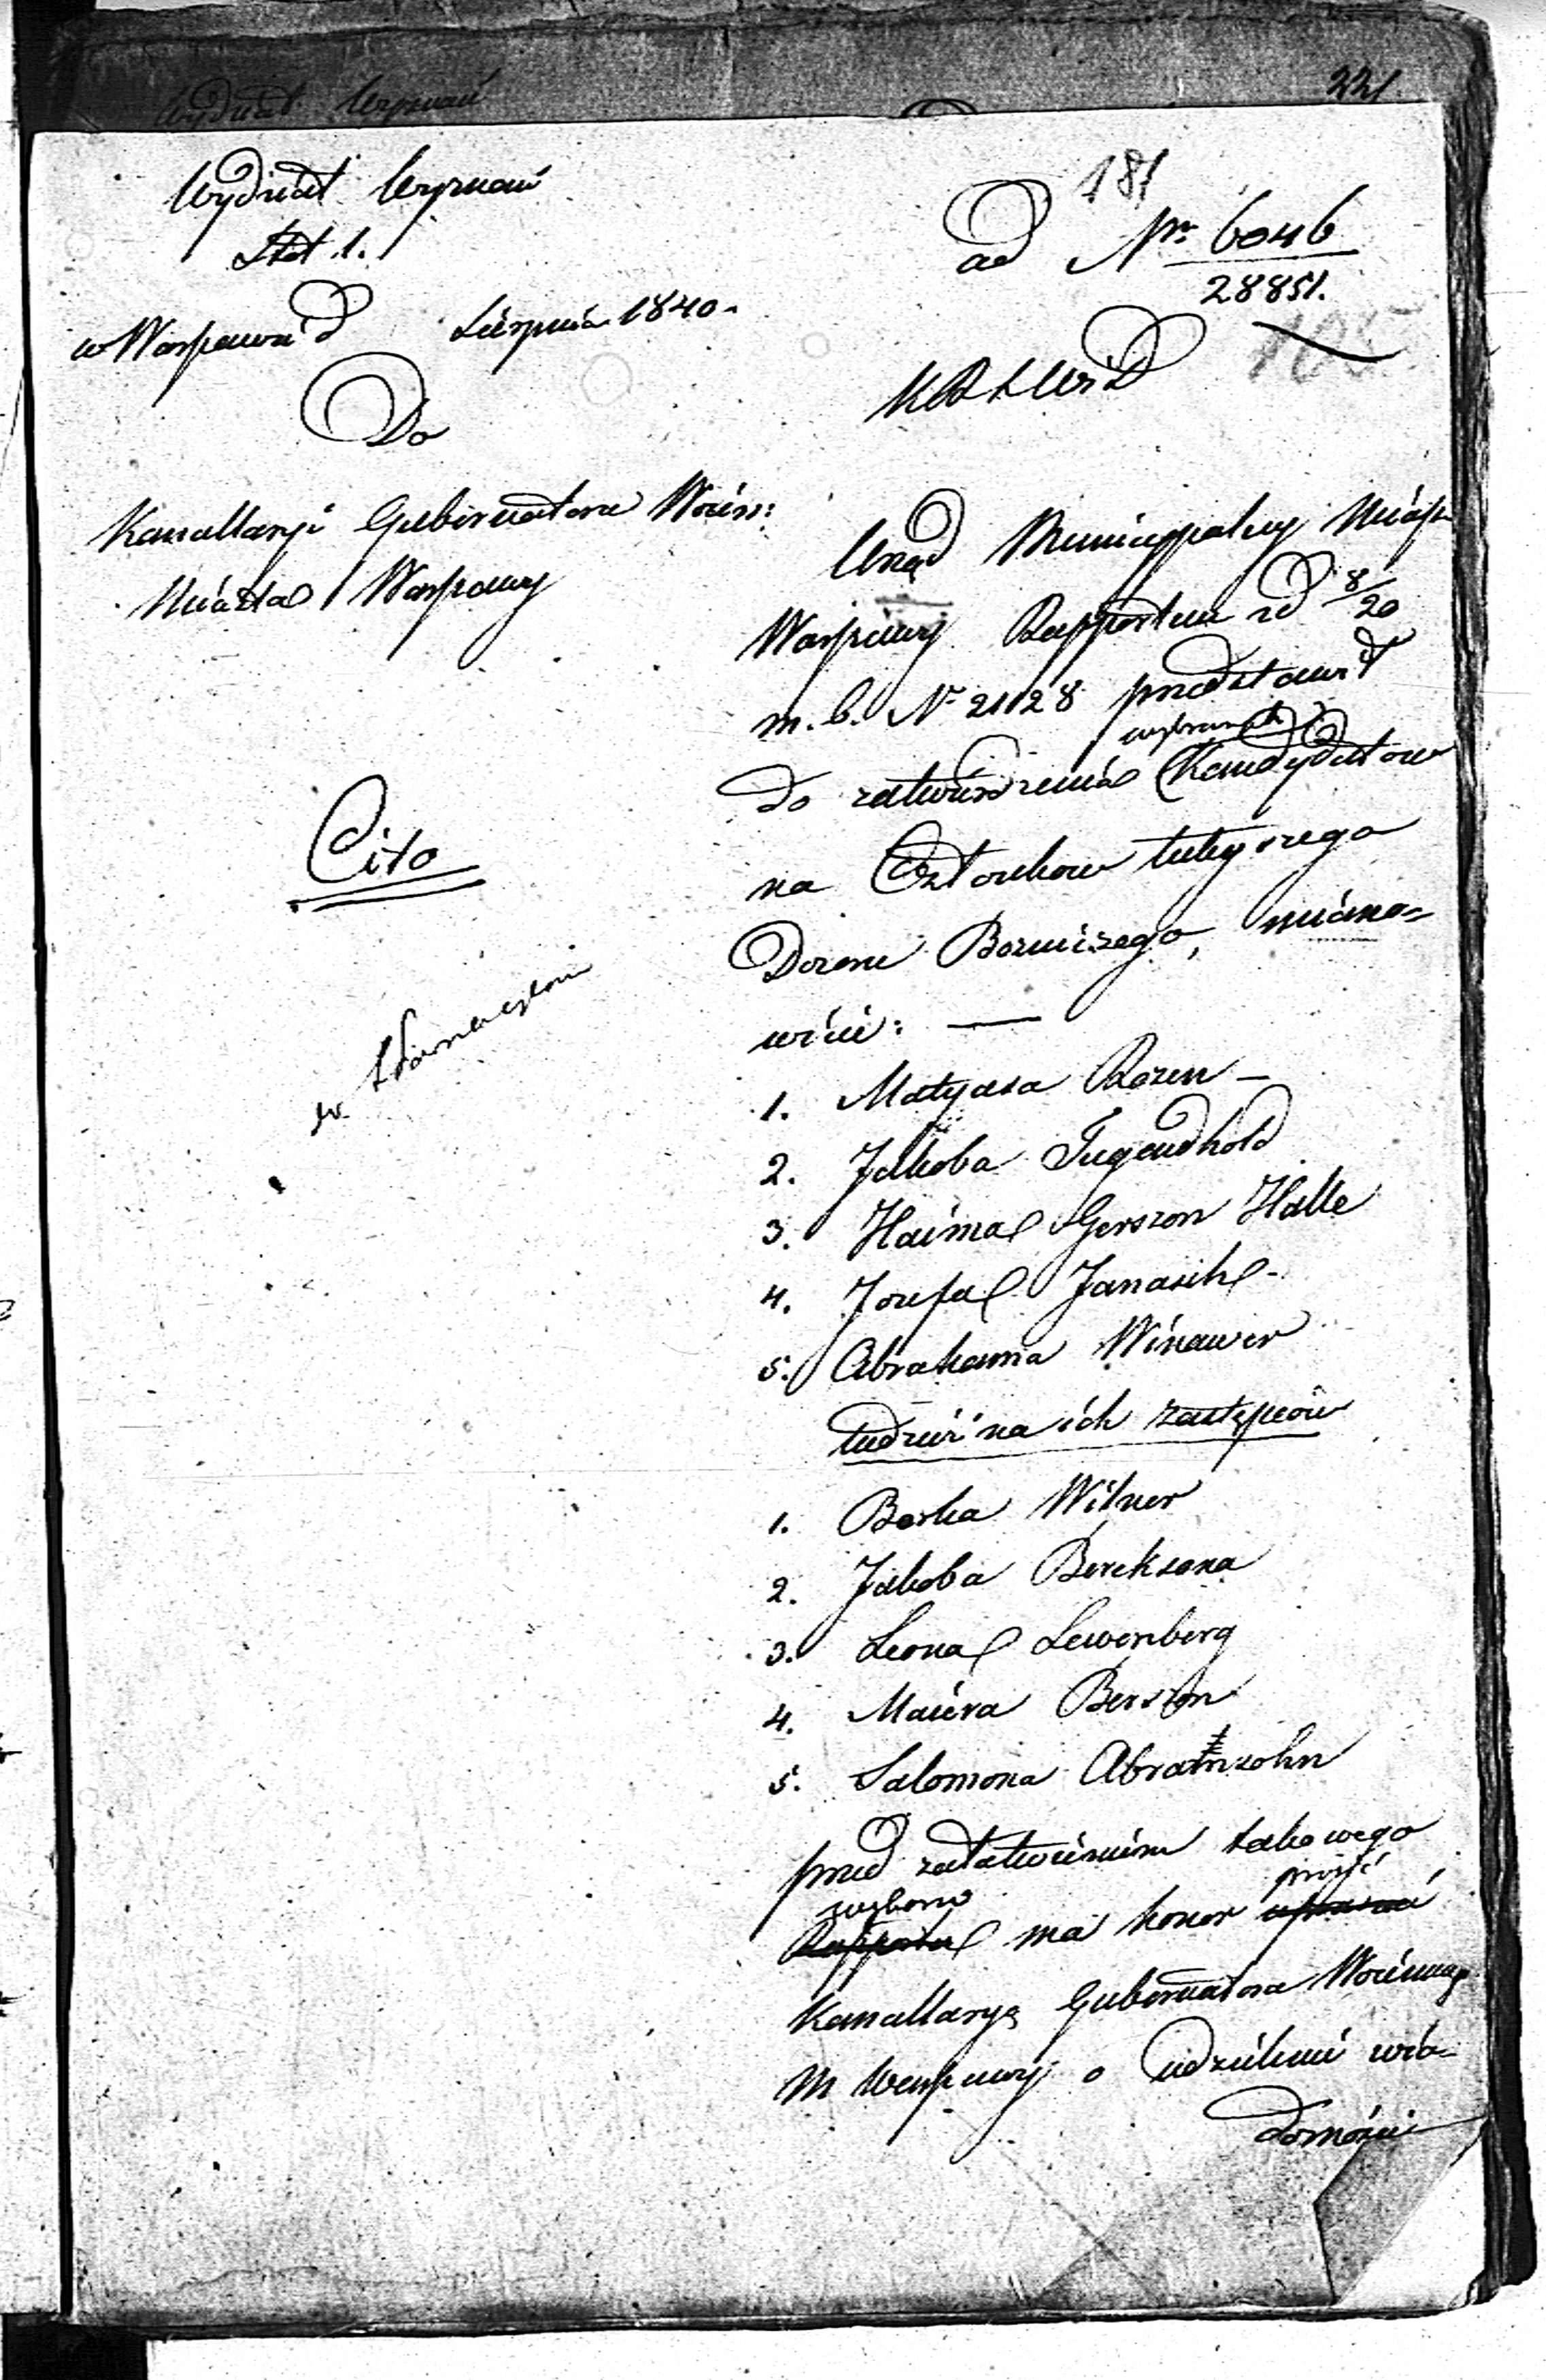 221
Wydział Wyznań
Sekt 1.
w Warszawie d Sierpnia 1840.
Do
Kancellaryi Gubernatora Woien:
Miasta Warszawy
Cito
181
ad Nr. 6046
28851.
105
KRSWiD
Urząd Municypalny Miasta
Warszawy Rapportem z d 8/20
m. b. Nr 21128 przedstawił
wybranych
do zatwierdzenia Kandydatów
na Członków tuteyszego
Dozoru Bożniczego, miano=
wicie: —
1. Matyasa Rozen —
2. Jakoba Tugendhold
3. Haima Gerszon Halle
4. Jozefa Janasik -
5. Abrahama Winawer
tudzież na ich zastępców
1. Berka Wilner
2. Jakoba Bereksona
3. Leona Lewenberg
4. Maiera Berszon
5. Salomona Abramsohn
przed załatwieniem takowego
wyboru prosić
Rapportu ma honor upraszać
Kancellaryę Gubernatora Woienneg
M Warszawy o udzielenie wia-
domości